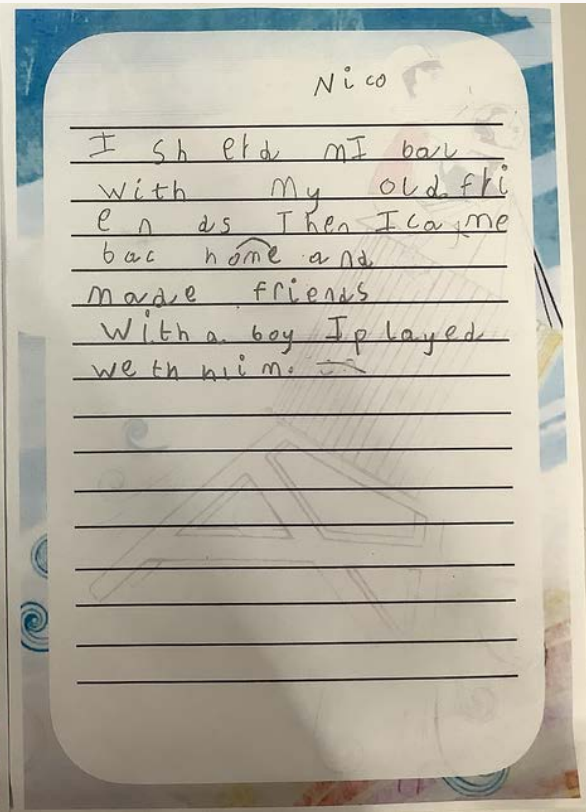 Nico
I sherd mI bal
with my old fri
en ds Then I came
bac home and
made friends
With a boy I played
we th hiim.